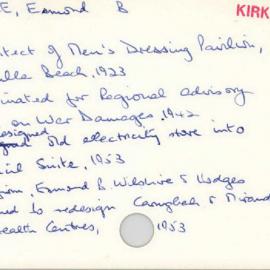 E, Esmond B KIRK
itect of Men's Dressing Pavilion,
lle Beach, 1923
inated for Regional advisory
on War Damages, 1942
esigned
old electricity store into
cil Suite, 1953
Esmond B. Wilshire & Hodges
ned to redesign Campbell & Mirand
ealth Centres, 1953